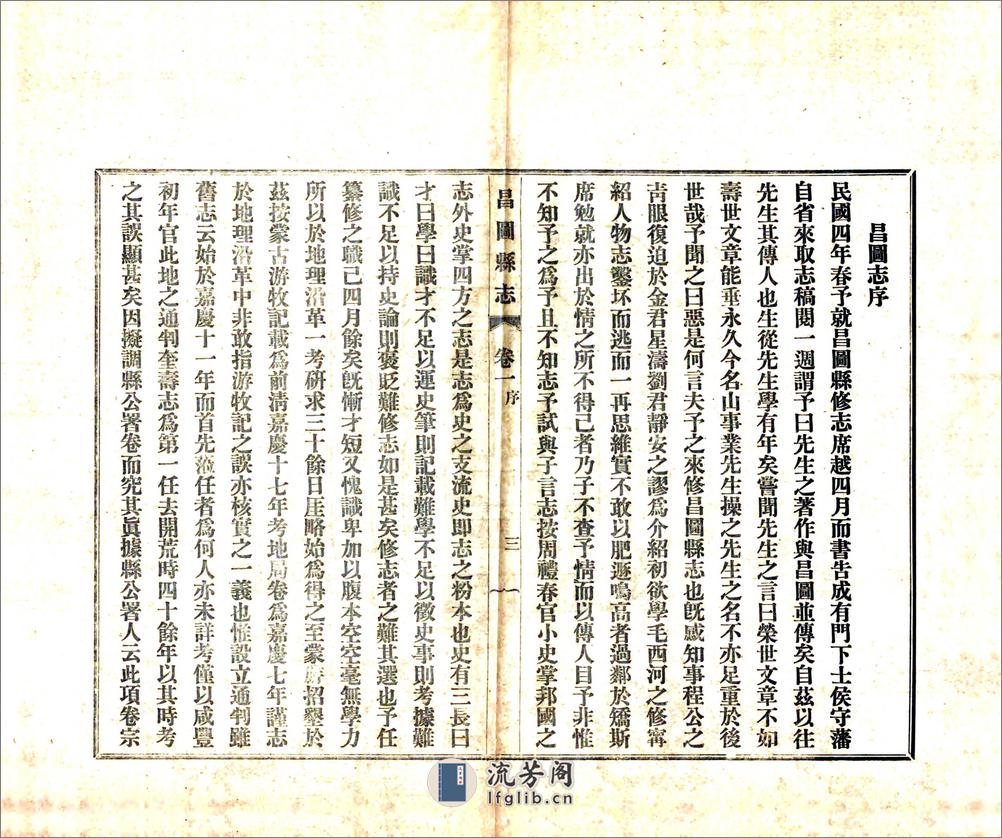 昌圖志序
民國四年春予就昌圖縣修志席越四月而書告成有門下士侯守藩
自省來取志稿閱一週謂予曰先生之著作與昌圖並傳矣自茲以往
先生其傳人也生從先生學有年矣嘗聞先生之言曰榮世文章不如
壽世文章能垂永久今名山事業先生操之先生之名不亦足重於後
世哉予聞之曰惡是何言夫予之來修昌圖縣志也旣感知事程公之
靑眼復迫於金君星濤劉君靜安之謬爲介紹初欲學毛西河之修甯
紹人物志鑿坏而逃而一再思維實不敢以肥遯鳴高者過鄰於矯斯
席勉就亦出於情之所不得已者乃子不查予情而以傳人目予非惟
不知予之爲予且不知志予試與子言志按周禮春官小史掌邦國之
昌圖縣志 卷一 序 三
志外史掌四方之志是志爲史之支流史即志之粉本也史有三長曰
才曰學曰識才不足以運史筆則記載難學不足以徵史事則考據難
識不足以持史論則褒貶難修志如是甚矣修志者之難其選也予任
纂修之職已四月餘矣旣慚才短又愧識卑加以腹本空空毫無學力
所以於地理沿革一考硏求三十餘日厓略始爲得之至蒙招墾於
茲按蒙古游牧記載爲前淸嘉慶十七年考地局卷爲嘉慶七年謹志
於地理沿革中非敢指游牧記之誤亦核實之一義也惟設立通判雖
舊志云始於嘉慶十一年而首先涖任者爲何人亦未詳考僅以咸豐
初年官此地之通判奎壽志爲第一任去開荒時四十餘年以其時考
之其誤顯甚矣因擬調縣公署卷而究其眞據縣公署人云此項卷宗
流芳閣
lfglib.cn